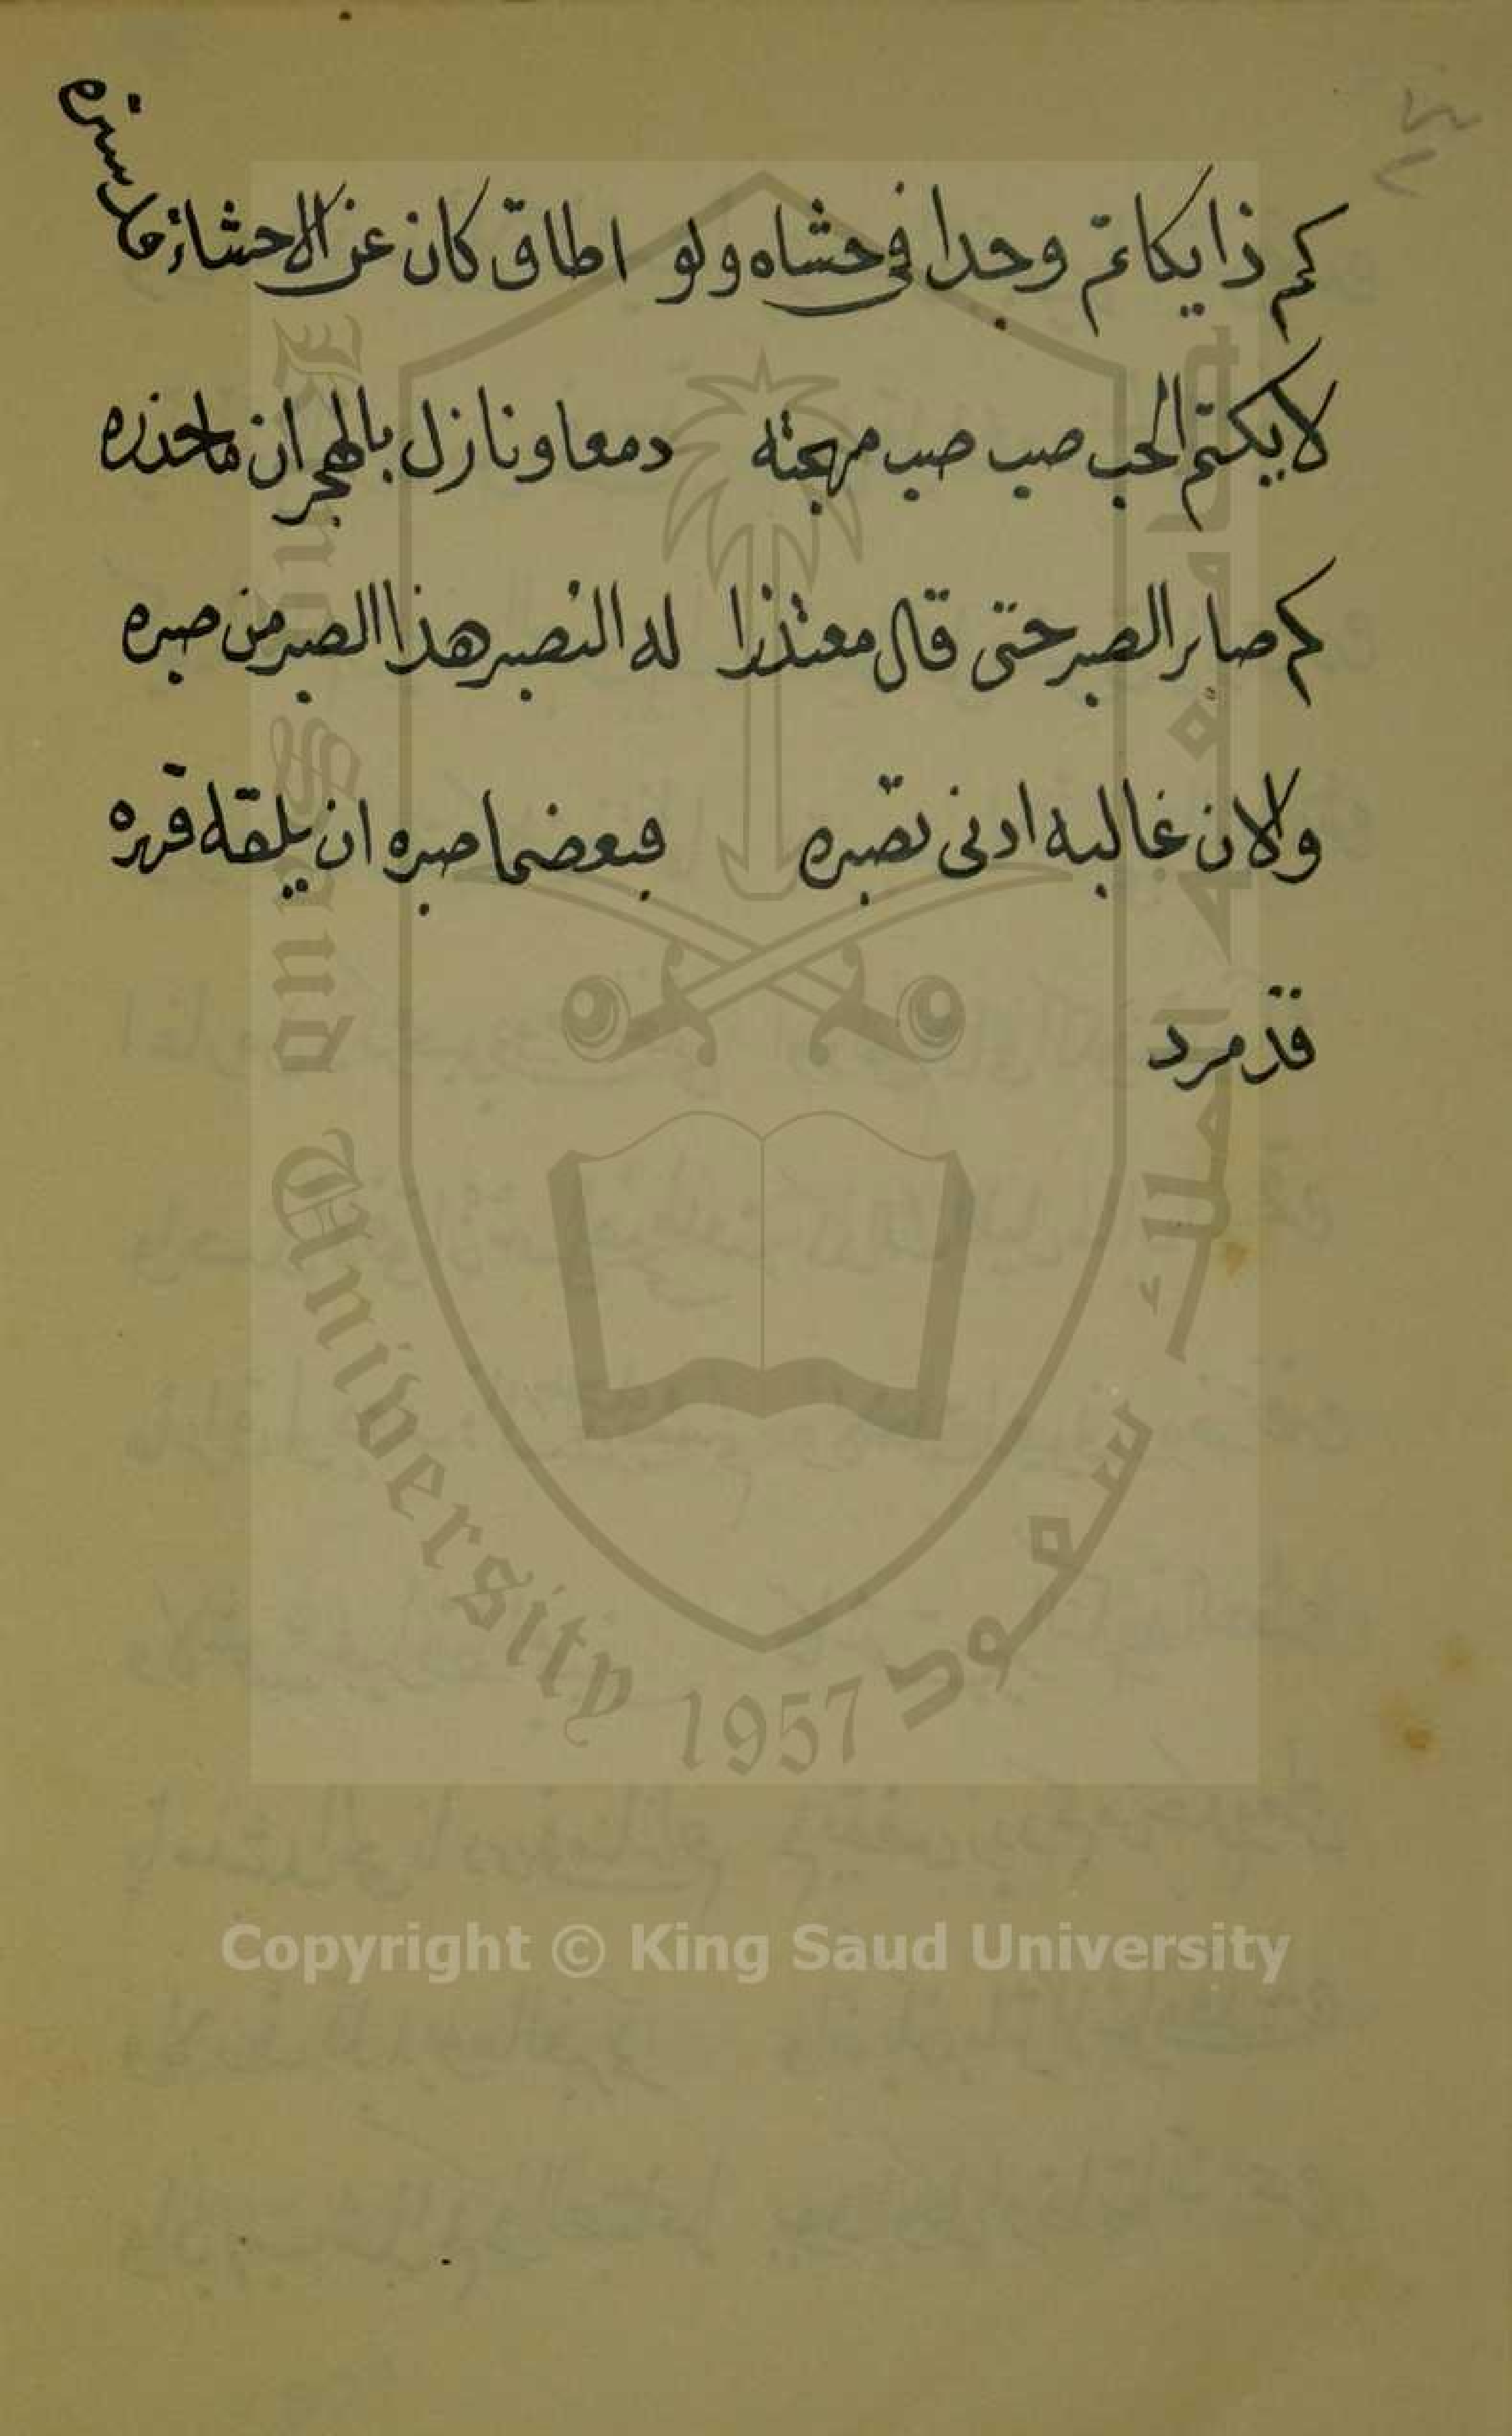 كم ذا يكاتم وجدا في حشاه ولو اطاق كان عن الاحشاء قد ستره
لا يكتم الحب صب صب مهجته دمعا ونازل بالهجران ماحذره
كم صابر الصبر حتى قال معتذرا له التصبر هذا الصبر من صبره
ولان غالبه ادنى تصبره فبعضما صبره ان يلقه قهره
قد مرد
King Saud University
1957
جامعة الملك سعود
Copyright © King Saud University